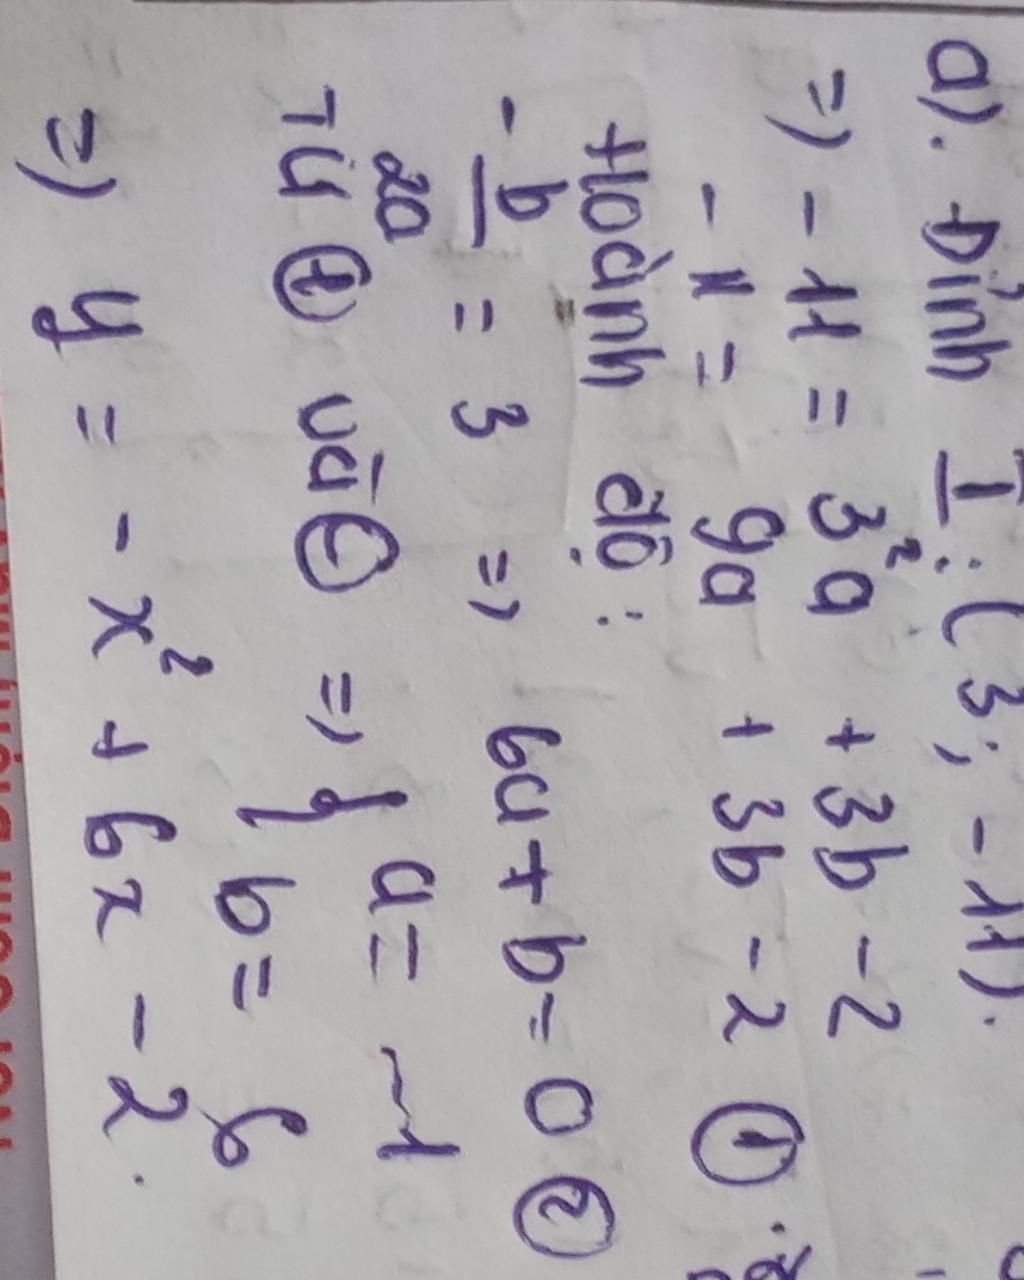 a). Đỉnh I: (3; -11).
=) -11 = 3²a + 3b - 2
-11 = 9a + 3b - 2 ①.
+Hoành độ:
-b/2a = 3 => 6a + b = 0 ②
Từ ① và ② => { a = -1
b = 6
=) y = -x² + 6x - 2.